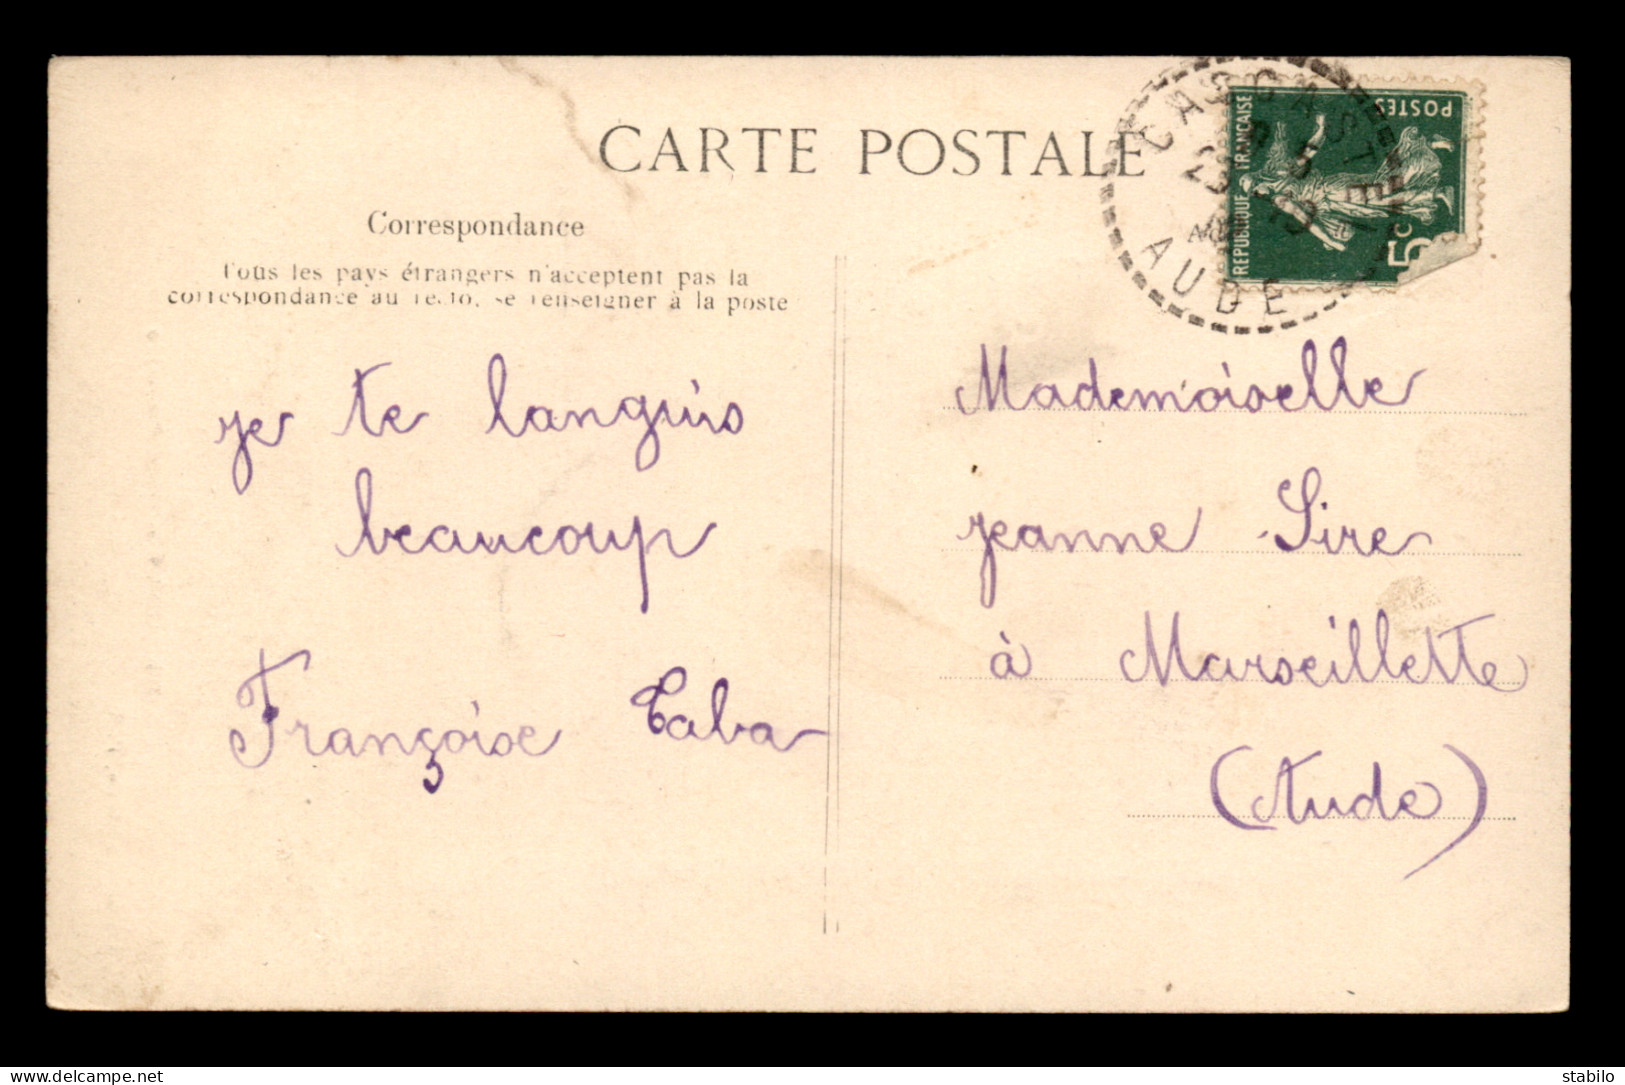 CARTE POSTALE
Correspondance
Tous les pays étrangers n'acceptent pas la
correspondance au recto, se renseigner à la poste
CASCASTEL
AUDE
REPUBLIQUE FRANÇAISE
POSTES
5c
je te languis
beaucoup
Françoise Caba
Mademoiselle
jeanne Sire
à Marseillette
(Aude)
delcampe.net
stabilo